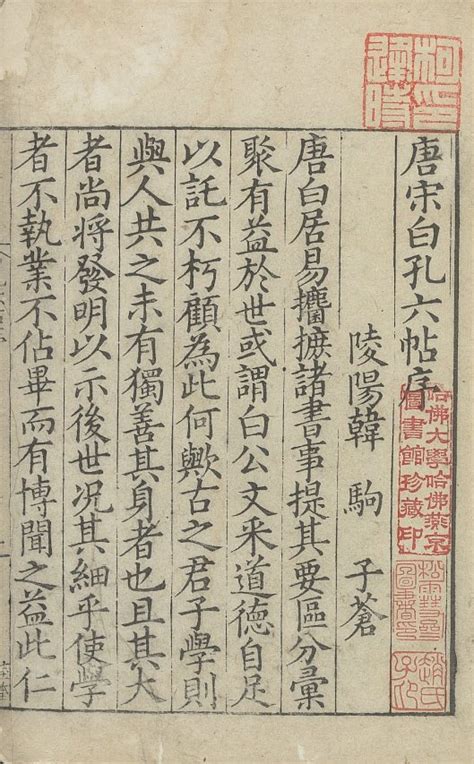 唐宋白孔六帖序
陵陽韓 駒 子蒼
唐白居易攟摭諸書事提其要區分彙
聚有益於世或謂白公文采道德自足
以託不朽顧為此何歟古之君子學則
與人共之未有獨善其身者也且其大
者尚將發明以示後世况其細乎使學
者不執業不佔畢而有博聞之益此仁
柯逢時印
哈佛大學哈佛燕京
圖書館珍藏印
趙氏
子卬